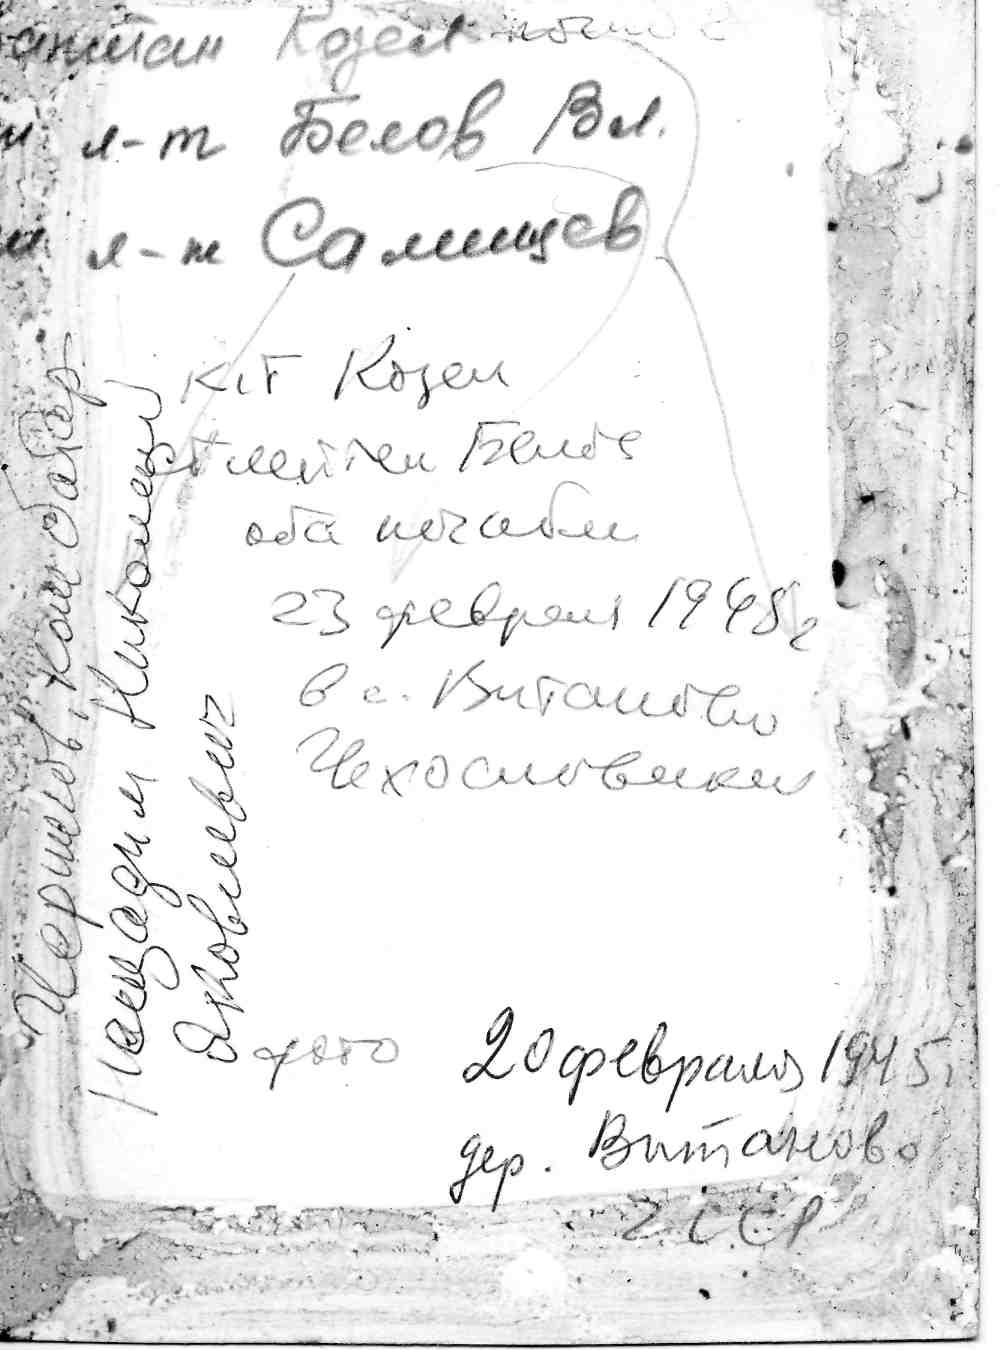 капитан Козел
л-т Белов Вл.
л-т Самищев
к-т Козел
ст лейтен Белов
оба погибли
23 февраля 1945г
в с. Витаново
Чехословакии
Чершов, комбатер
Нащадим Николай
Яковлевич
фото 20 февраля 1945г
дер. Витаново
ЧССР